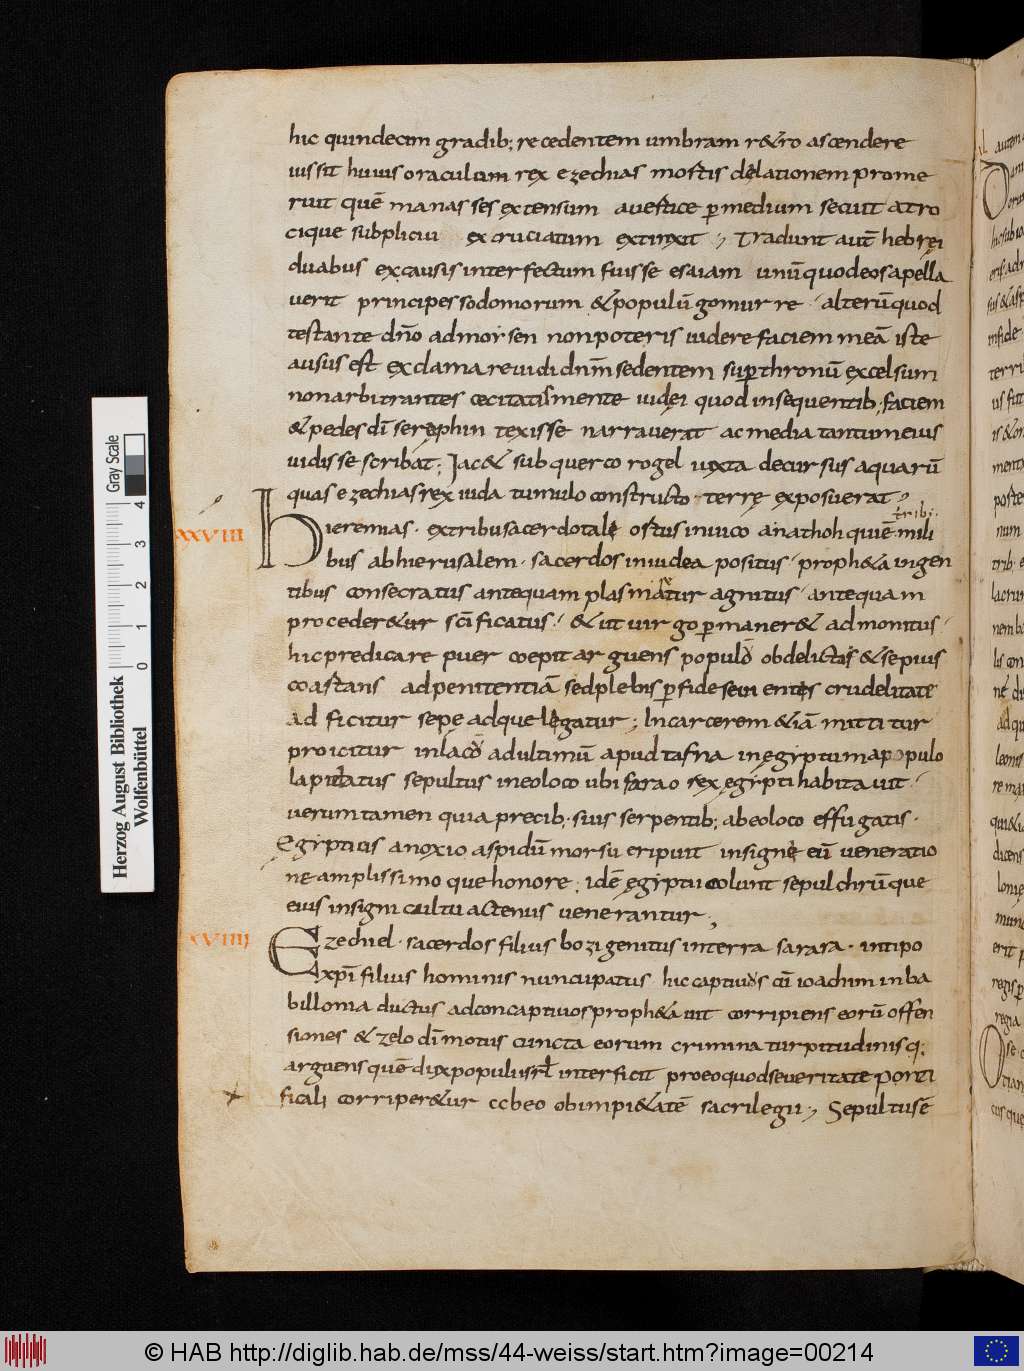 hic quindecim gradib; recedentem umbram r&ro ascendere
iussit huius oraculum rex ezechias mostis dęlationem prome
ruit quē manasses extensum avestice p̱ medium secuit atro
cique subpliciu excruciatum extinxit ; Tradunt aut̄ hebręi
duabus excausis interfectum fuisse esaiam unū quodeos apella
uerit principes sodomorum & populū gomurre · alterū quod
testante dn̄o admorsen non poteris uidere faciem meā iste
ausus est exclamare uidi dnm̄ sedentem sup̱ thronū excelsum
non arbitrantes cecitatis mente uidęi quod insequentib; faciem
& pedes dī seręphin texisse narrauerat ac media tantum eius
uidisse scribat; Jac& sub querco rogel uxta decursus aquarū
quas ezechias rex iuda tumulo constructo · terrę exposuerat ;
XXVIII
trib;
Hieremias · extribu sacerdotalę ostus inuico anathoh qui ē mili
bus abhierusalem · sacerdos iniudea positus · proph&a ingen
tibus consecratus antequam plasmatur agnitus · antequam
proceder&ur scī ficatus · & ut uirgo p̱maner& admonitus ·
hic predicare puer coepit arguens populo ob delictis & sepius
coastans ad penitentiā sed plebis p̱fide seuientes crudelitate
adficitur sepe adque lęgatur ; Incarcerem &iā mittitur
proicitur inlaco adultimū apud tafna in egyptum a populo
lapidatus sepultus in eoloco ubi farao rex ęgypti habitauit ·
uerumtamen quia precib; suis serpentib; abeoloco effugatis ·
Egiptius anoxio aspidū morsu eripuit insignę eū ueneratio
ne amplissimo que honore ; idē ęgyptii colunt sepulchrū que
eius insigni cultu actenus uenerantur ;
XXVIIII
Ezechiel · sacerdos filius bozi genitus interra sarara · intipo
xpī filius hominis nuncupatus hic captiuos cū ioachim inba
billonia ductus ad concaptiuos proph&auit corripiens eorū offen
siones & zelo dī motus cuncta eorum crimina turpitudinisq;
arguens quē dux populus irł interficit pro eo quod seueritate ponti
ficali corriper&ur ccbeo ob impi&atē sacrilegii ; Sepultus ē
Herzog August Bibliothek
Wolfenbüttel
Gray Scale
0 1 2 3 4
© HAB http://diglib.hab.de/mss/44-weiss/start.htm?image=00214